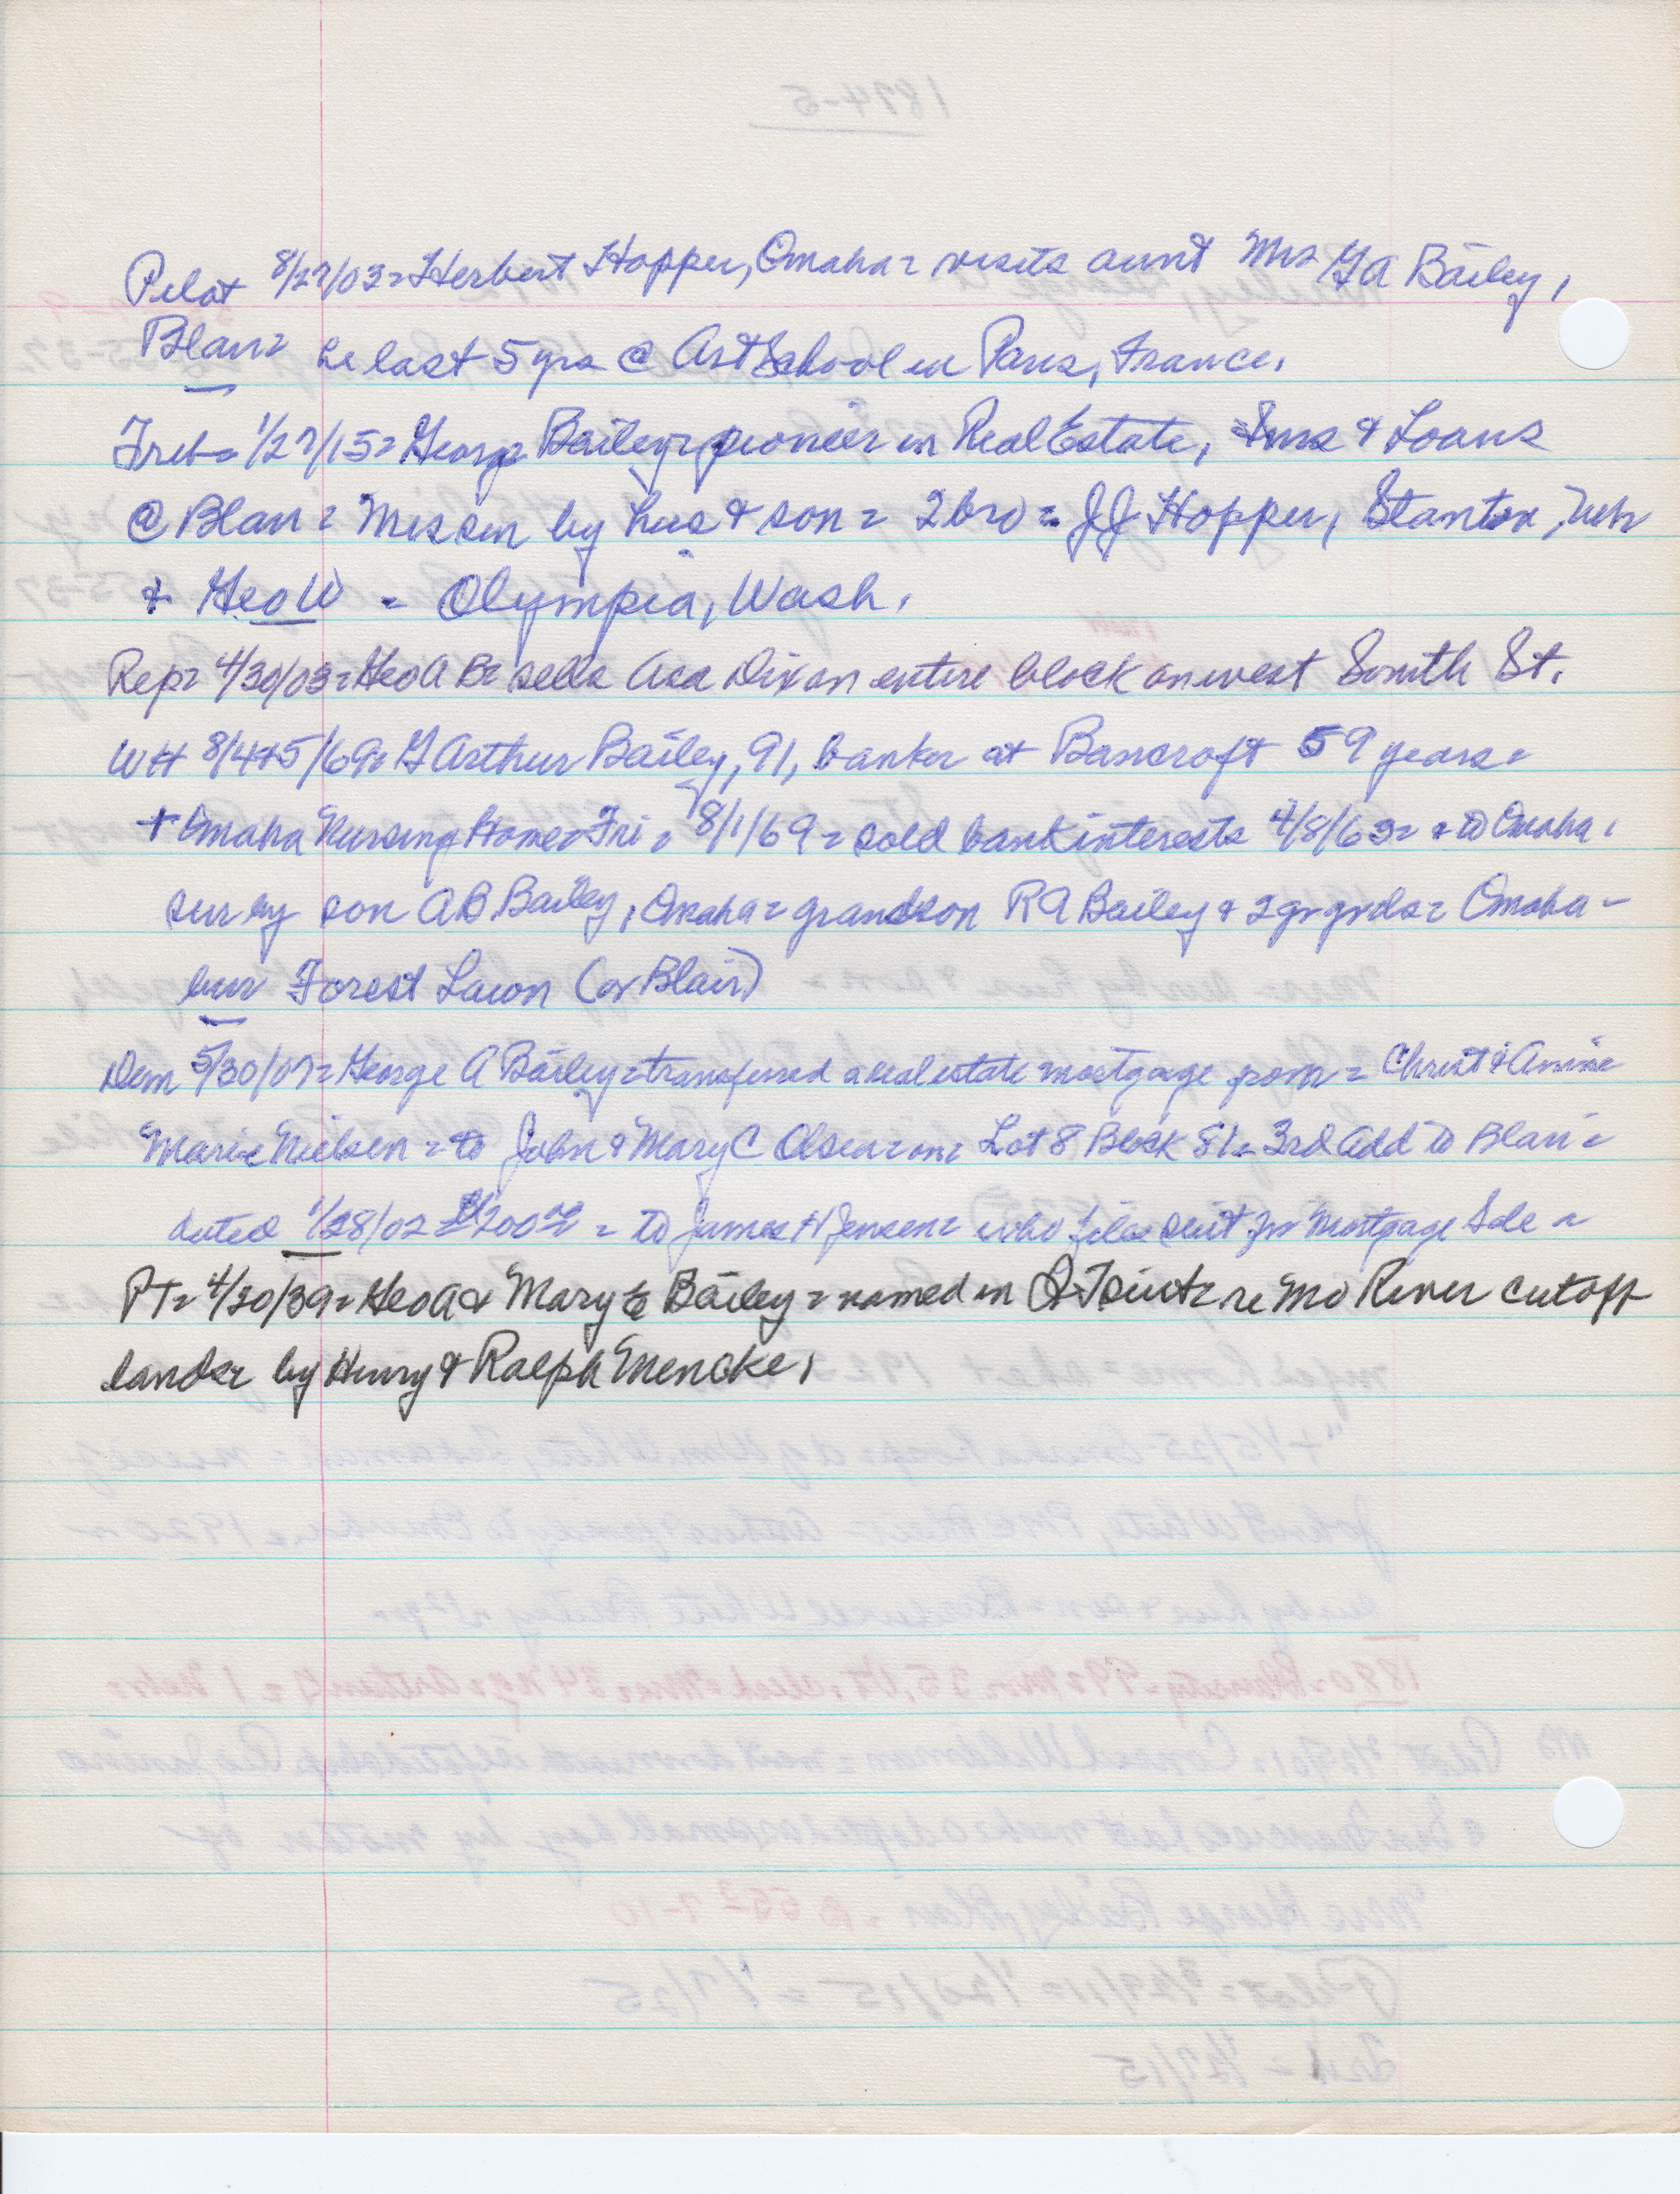 Pilot 8/27/03 = Herbert Hopper, Omaha = visits aunt Mrs GA Bailey,
Blair = he last 5 yrs @ Art School in Paris, France.
Trib = 1/27/15 = George Bailey = pioneer in Real Estate, Ins & Loans
@ Blair = Mrs sur by hus & son = 2 bro = JJ Hopper, Stanton, Neb
& Geo W - Olympia, Wash.
Rep = 4/30/03 = Geo A B = sells Asa Dixon entire block on west South St.
WH 8/4+5/69 = G Arthur Bailey, 91, banker at Bancroft 59 years =
+ Omaha Nursing Home = Fri = 8/1/69 = sold bank interests 4/8/63 = & to Omaha.
sur by son AB Bailey, Omaha = grandson RA Bailey & 2 gr grds = Omaha -
bur Forest Lawn (or Blair)
Dem 5/30/07 = George A Bailey = transferred a real estate mortgage from = Christ & Annie
Marie Nielsen = to John & Mary C Olsen = on = Lot 8 Block 81 = 3rd Add to Blair =
dated 1/28/02 = $200 = to James H Jensen = who files suit for Mortgage Sale =
PT = 4/20/39 = Geo A & Mary E Bailey = named in Q T Suit = re Mo River cutoff
lands = by Henry & Ralph Mencke.